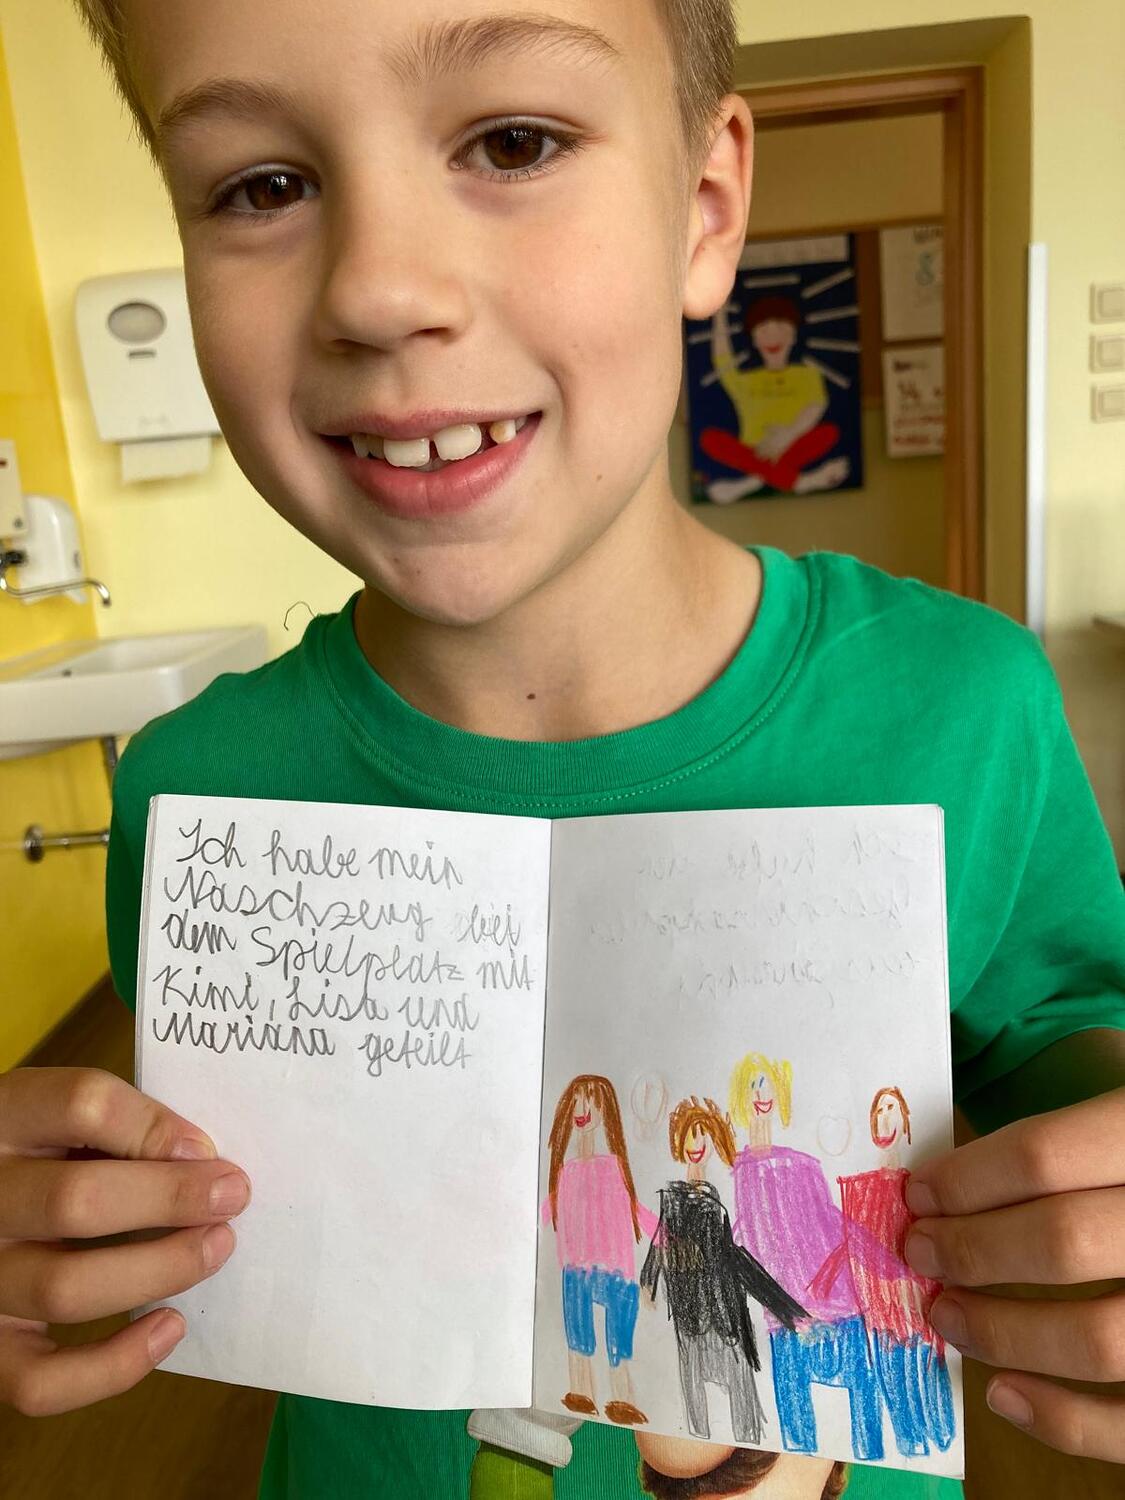 Ich habe mein
Naschzeug bei
dem Spielplatz mit
Kimi, Lisa und
Mariana geteilt